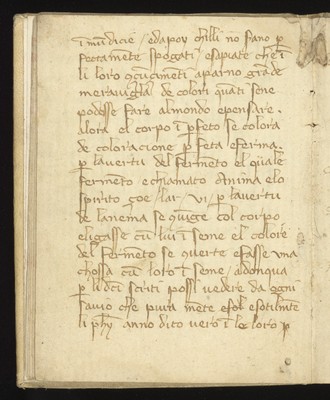 i mūdicie / eda poy chilli no sano p
fectamēte spogati / esapiate che ī
li loro 9cucimeti aparno grāde
meraviglia de colori quāti sene
podesse fare almondo epensare.
Alora el corpo ī pfeto se colora
de coloracione pfeta eferma.
p la vertu del fermēto el quale
fermēto echiamato Anima elo
spirito çoe / lar / vi / p la vertu
de lanema se 9uiçe col corpo
eligasse cū lui ī seme el colore
del fermēto se 9uerte efasse una
chossa cū loro ī seme / adonqua
p li dcī scriti possi vedere da ogni
savio che pura mēte esol esotilmēte
li phȳ anno dito vero ī le loro p